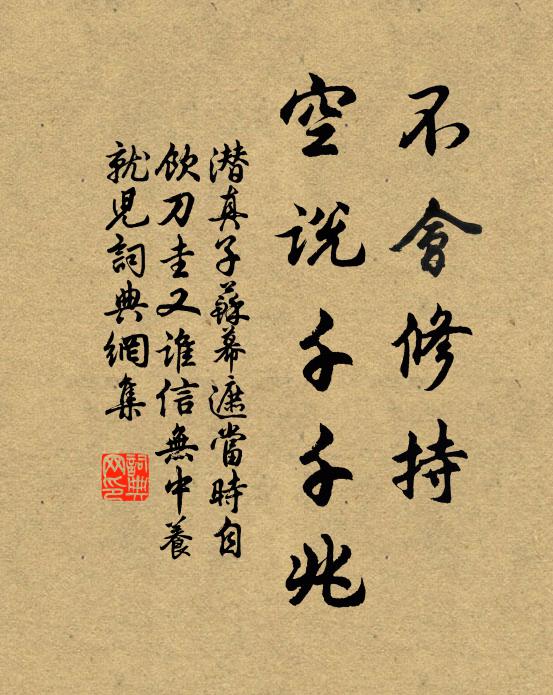 不會修持
空说千千兆
潜真子蘇幕遮當時自
飲刀圭又誰信無中養
就児詞典網集
詞典
网印